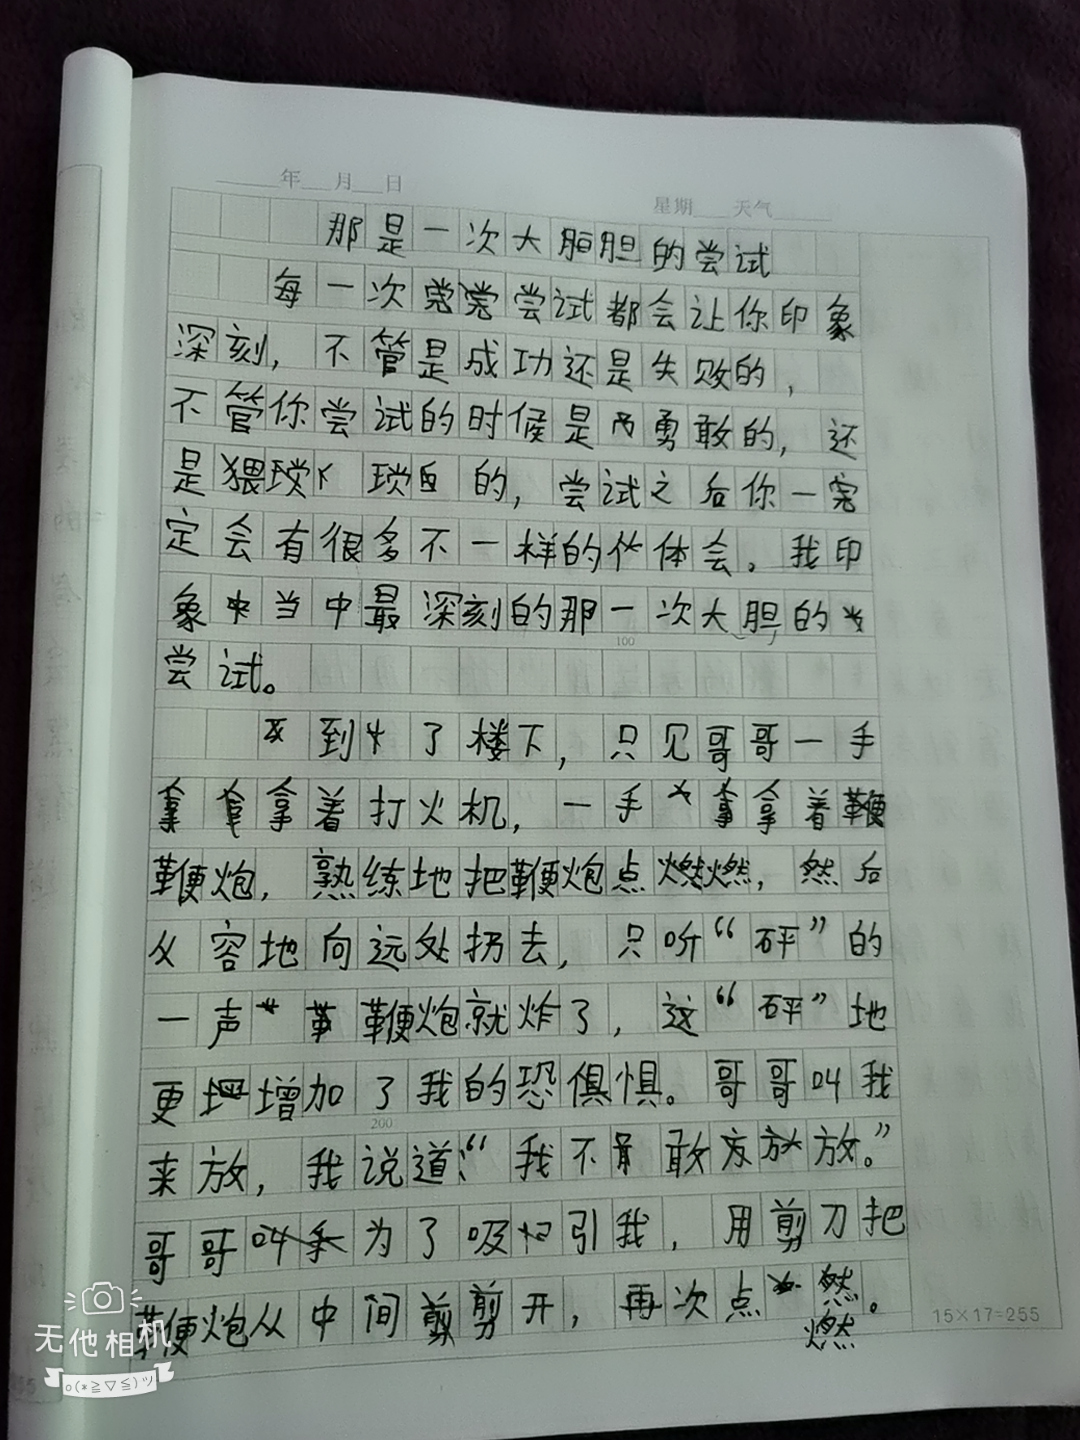 年 月 日
星期 天气
那是一次大胆的尝试
每一次尝试都会让你印象
深刻，不管是成功还是失败的，
不管你尝试的时候是勇敢的，还
是猥琐的，尝试之后你一
定会有很多不一样的体会。我印
象当中最深刻的那一次大胆的
尝试。
100
到了楼下，只见哥哥一手
拿着打火机，一手拿着
鞭炮，熟练地把鞭炮点燃，然后
从容地向远处扔去，只听“砰”的
一声鞭炮就炸了，这“砰”地
更增加了我的恐惧。哥哥叫我
200
来放，我说道：“我不敢放。”
哥哥为了吸引我，用剪刀把
鞭炮从中间剪开，再次点燃。
15×17=255
无他相机
o(*≧▽≦)ツ